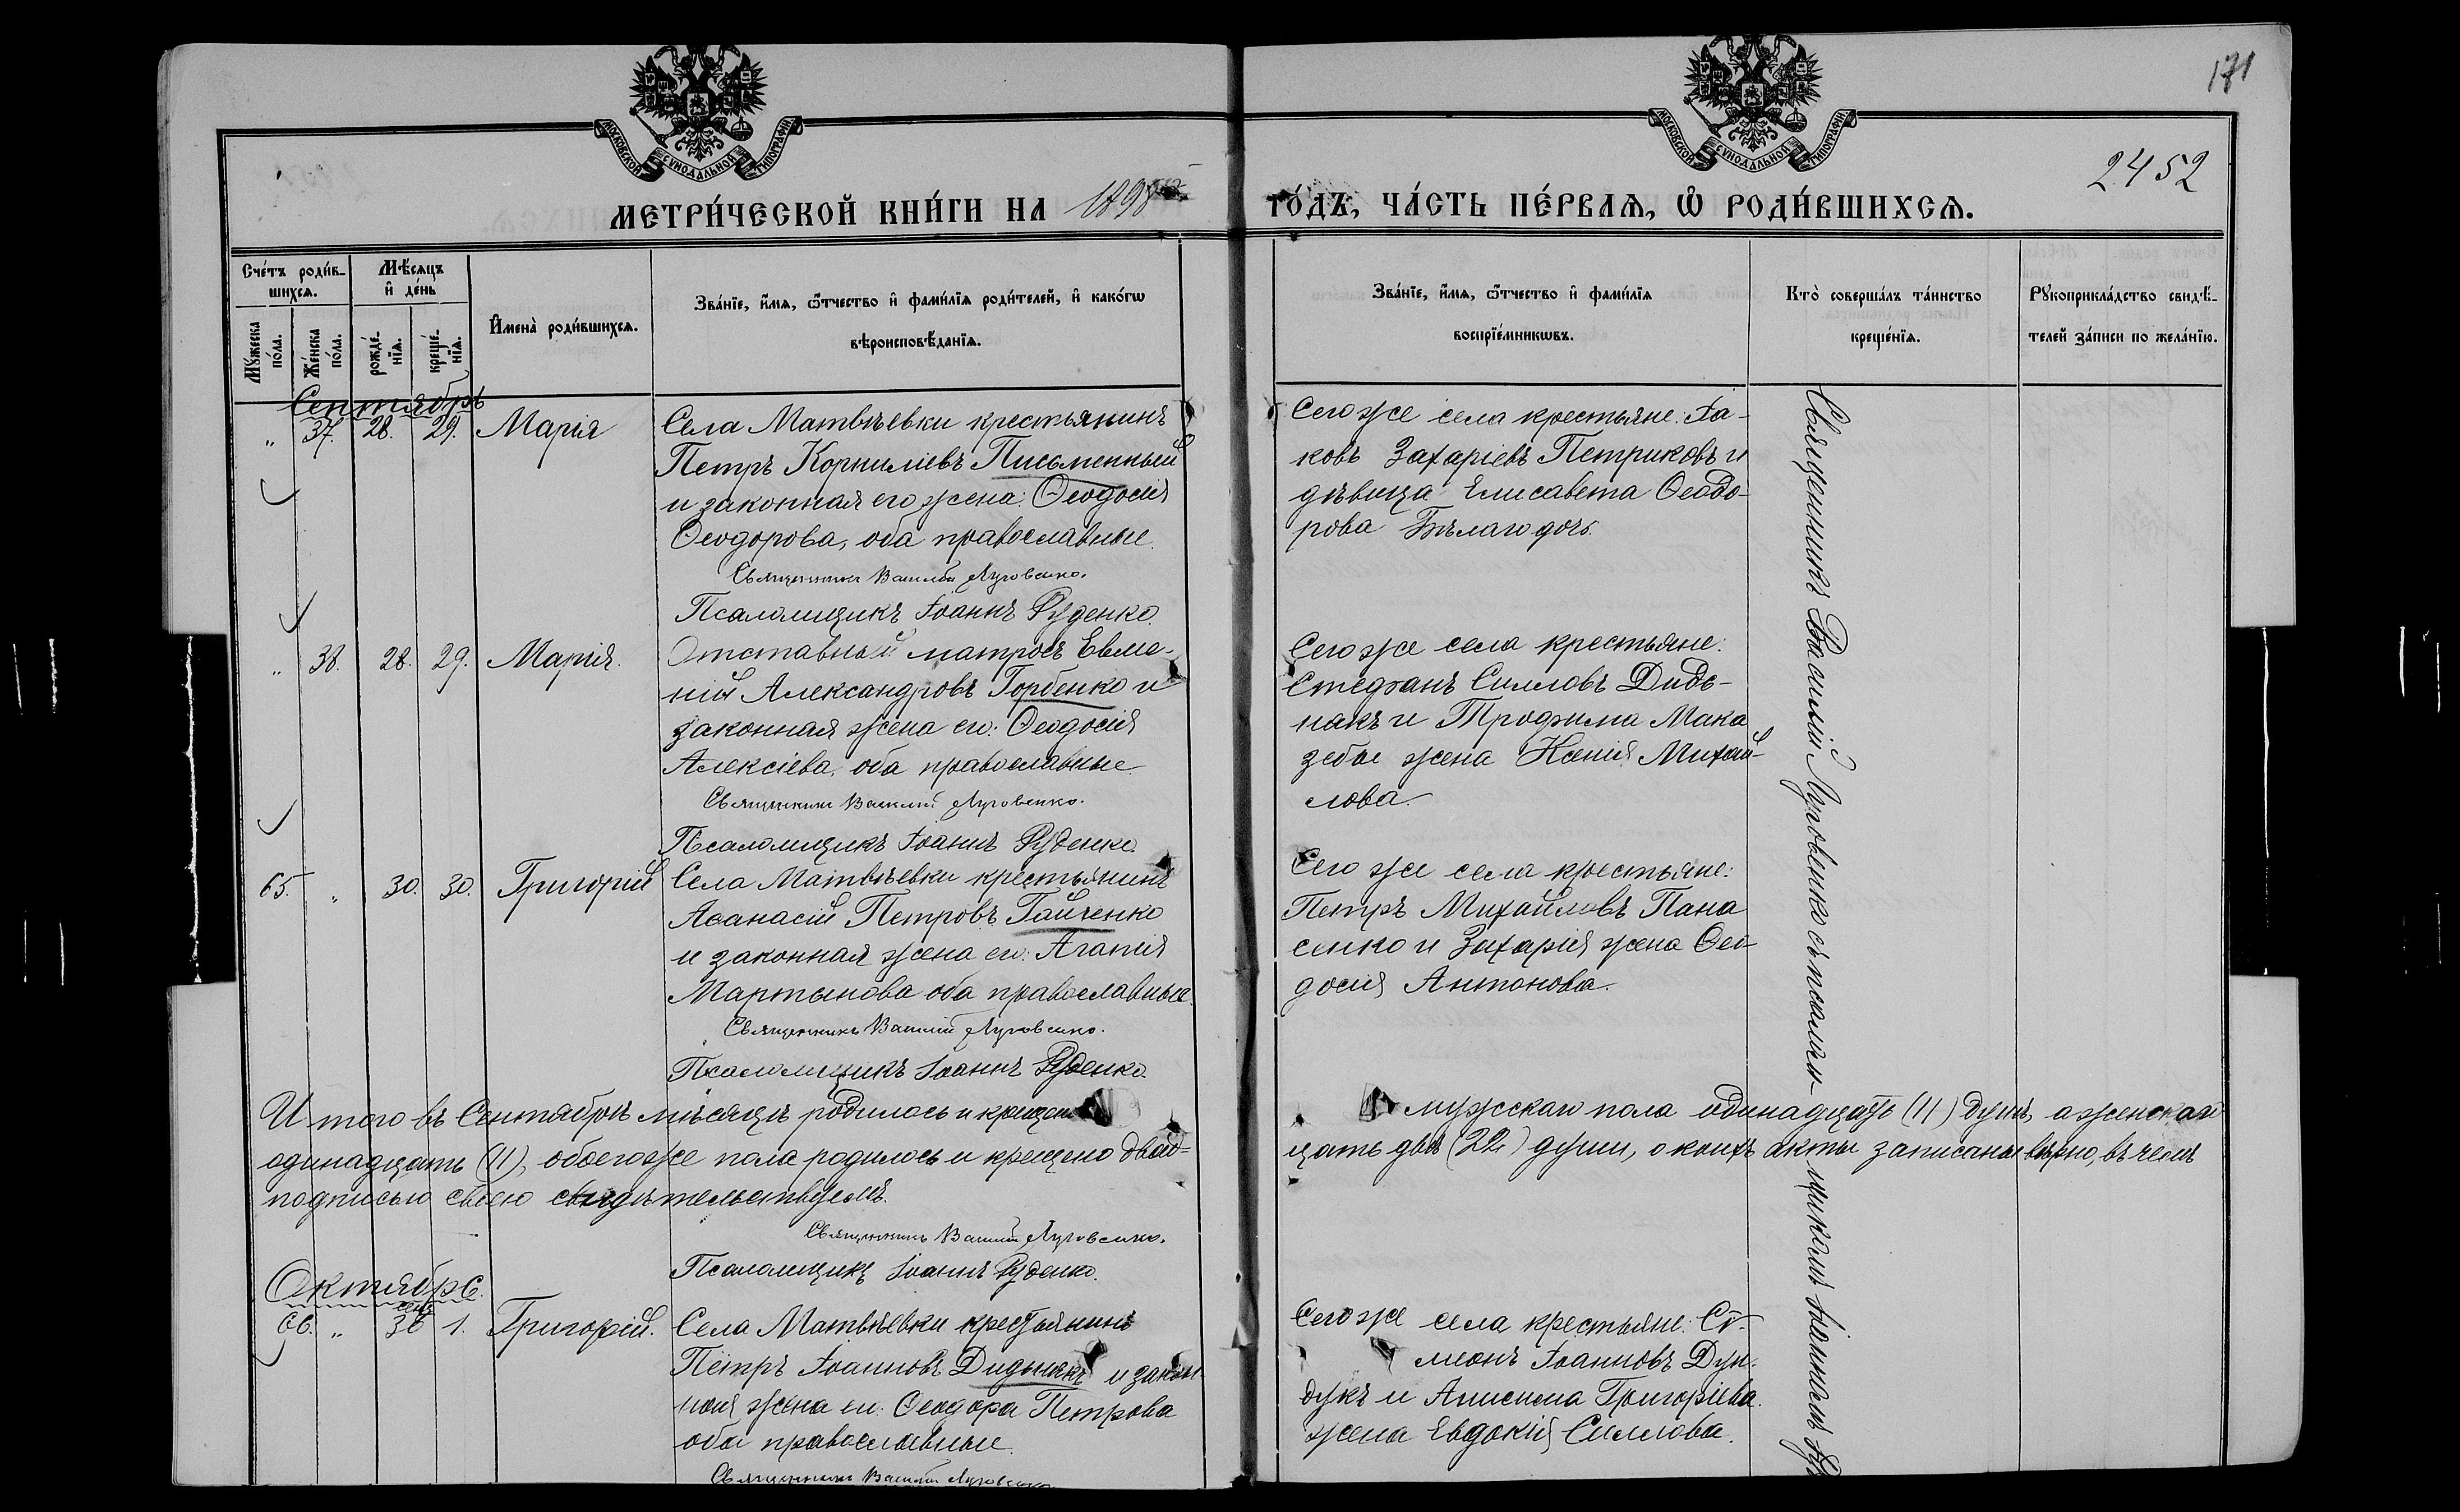 171
2452
МОСКОВСКОЙ СУНОДАЛЬНОЙ ТИПОГРАФІИ
МОСКОВСКОЙ СУНОДАЛЬНОЙ ТИПОГРАФІИ
МЕТРИ́ЧЕСКОЙ КНИ́ГИ НА 1898 ГО́ДЪ, ЧА́СТЬ ПЕ́РВАѦ, Ѡ РОДИ́ВШИХСѦ.
Сче́тъ роди́в-
шихсѧ.
Мѣ́сѧцъ
и҆ де́нь
Мꙋ́жеска
по́ла.
Же́нска
по́ла.
рожде́-
нїѧ.
креще́-
нїѧ.
И҆мена̀ роди́вшихсѧ.
Зва́нїе, и҆́мѧ, ѻ҆́тчество и҆ фами́лїѧ роди́телей, и҆ како́гѡ
вѣроисповѣ́данїѧ.
Зва́нїе, и҆́мѧ, ѻ҆́тчество и҆ фами́лїѧ
воспрїе́мникѡвъ.
Кто̀ соверша́лъ та́инство
креще́нїѧ.
Рꙋкоприкла́дство свидѣ́-
телей за́писи по жела́нїю.
Сентябрь
„ 37. 28. 29. Марія
Села Матвѣевки крестьянинъ
Петръ Корниліевъ Письменный
и законная его жена: Ѳеодосія
Ѳеодорова, оба православные.
Священникъ Василій Луговенко.
Псаломщикъ Іоаннъ Руденко.
Сего же села крестьяне: Іа-
ковъ Захаріевъ Петриковъ и
дѣвица Елисавета Ѳеодо-
рова Бѣлаго дочь.
„ 38. 28. 29. Марія.
Отставный матросъ Евме-
ній Александровъ Горбенко и
законная жена его: Ѳеодосія
Алексіева, оба православные.
Священникъ Василій Луговенко.
Псаломщикъ Іоаннъ Руденко.
Сего же села крестьяне:
Стефанъ Силловъ Диды-
накъ и Трофима Мака
зебы жена Ксенія Михай-
лова.
65. „ 30. 30. Григорій
Села Матвѣевки крестьянинъ
Аѳанасій Петровъ Гайченко
и законная жена его: Агапія
Мартынова оба православные.
Священникъ Василій Луговенко.
Псаломщикъ Іоаннъ Руденко.
Сего же села крестьяне:
Петръ Михайловъ Пана
сенко и Захарія жена Ѳео
досія Антонова.
Итого въ Сентябрѣ мѣсяцѣ родилось и крещено мужскаго пола одинадцать (11) душъ, а женскаго
одинадцать (11), обоего же пола родилось и крещено двад-
цать двѣ (22) души, о коихъ акты записаны вѣрно, въ чемъ
подписью своею свидѣтельствуемъ.
Священникъ Василій Луговенко.
Псаломщикъ Іоаннъ Руденко.
Октябрь.
66. „ 30 1. Григорій.
Села Матвѣевки крестьянинъ
Петръ Іоанновъ Дидынакъ и закон-
ная жена его: Ѳеодора Петрова
оба православные.
Священникъ Василій Луговенко.
Сего же села крестьяне: Си-
меонъ Іоанновъ Дун-
дукъ и Анисима Григоріева
жена Евдокія Силлова.
Священникъ Василій Луговенко съ псалом-
щикомъ Іоанномъ